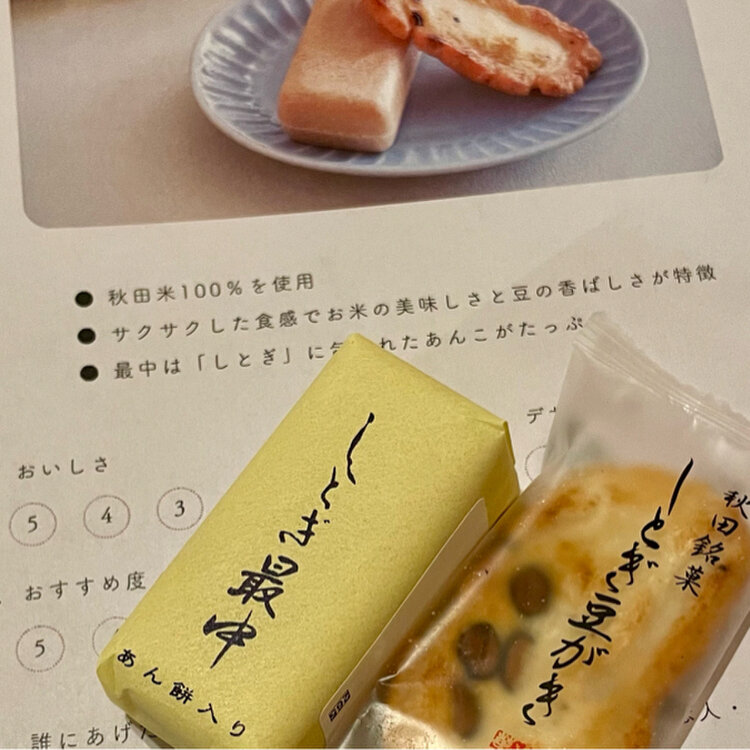 秋田米100%を使用
サクサクした食感でお米の美味しさと豆の香ばしさが特徴
最中は「しとぎ」に包まれたあんこがたっぷ
おいしさ
5 4 3
おすすめ度
5
誰にあげた
しとぎ最中
あん餅入り
秋田銘菓
しとぎ豆がき